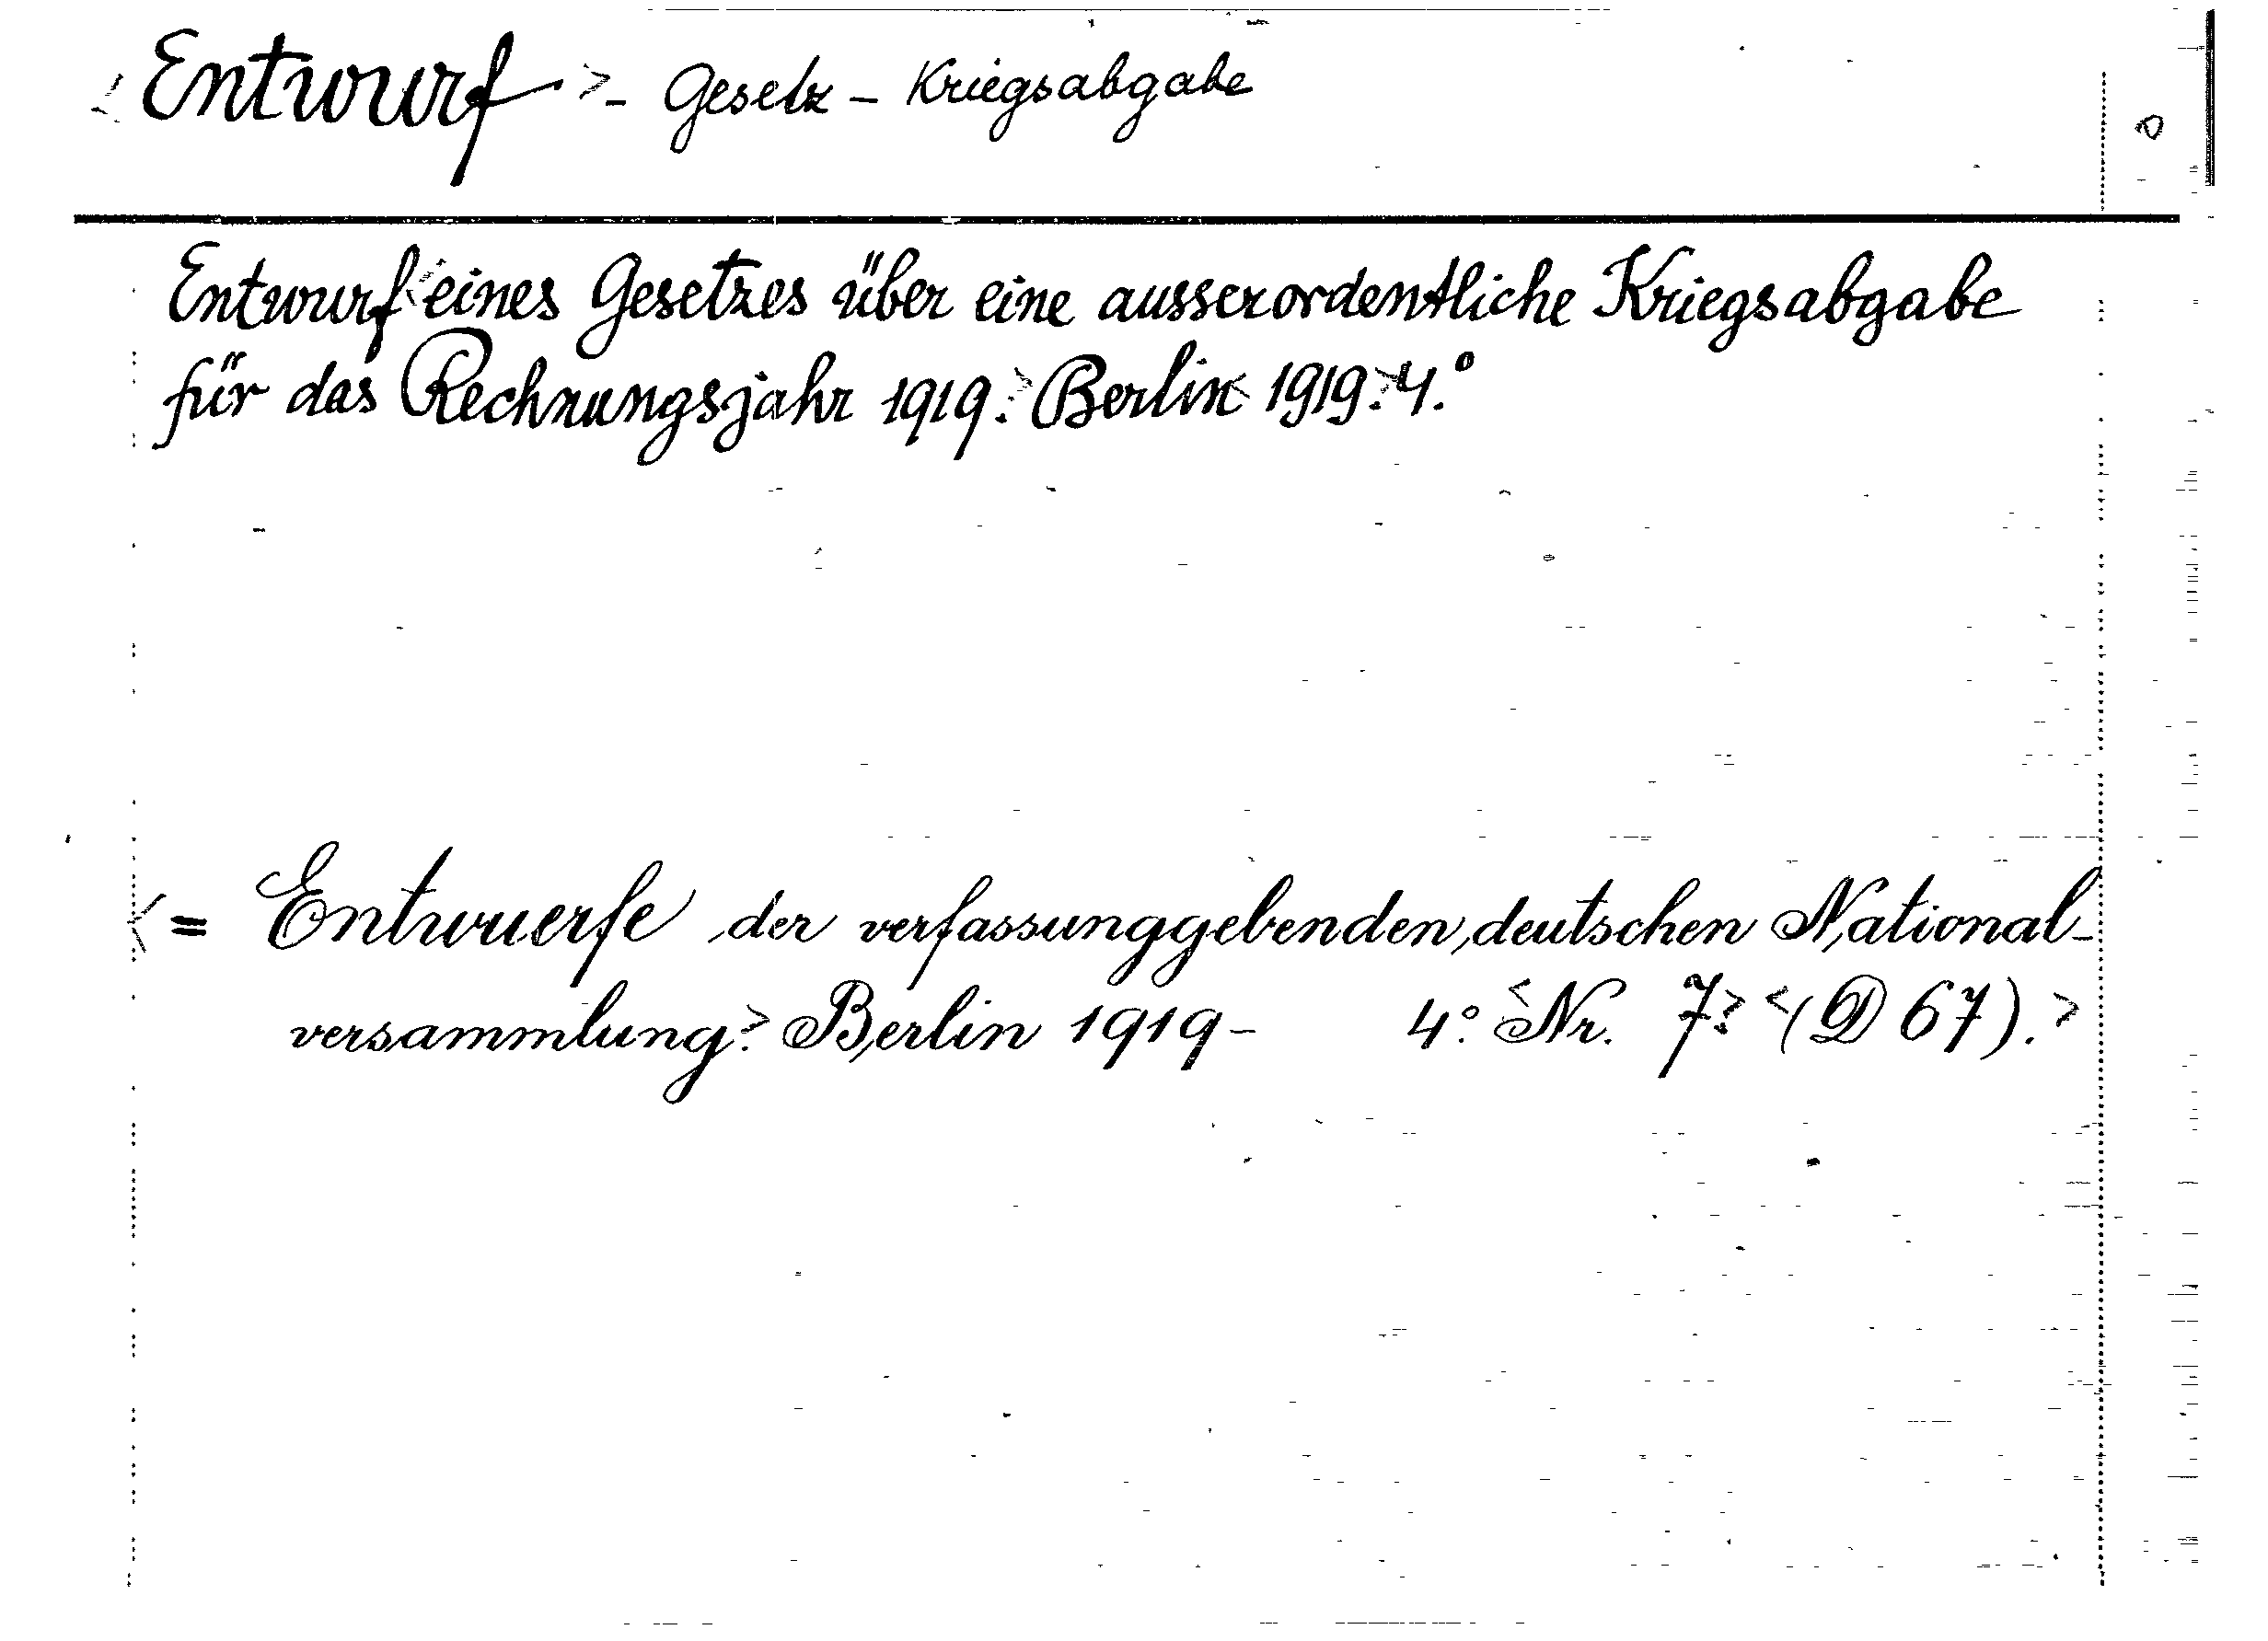 <Entwurf>- Gesetz - Kriegsabgabe
Entwurf <eines Gesetzes über eine ausserordentliche Kriegsabgabe
für das Rechnungsjahr 1919.> Berlin< 1919.>4.°
<= Entwuerfe der verfassunggebenden deutschen National-
versammlung.> Berlin 1919- 4° <Nr. 7.> <(D 67).>